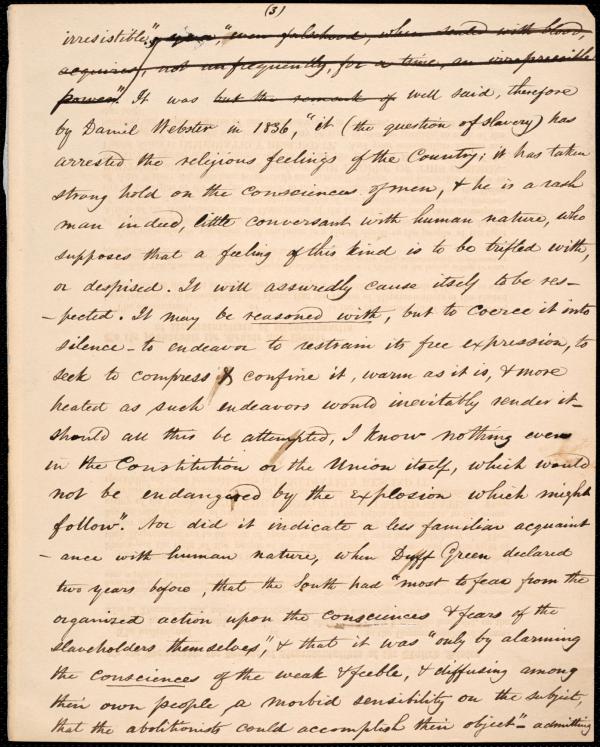 (3)
irresistible", "even falsehood, when sealed with blood,
acquires, not unfrequently, for a time, an irrepressible
power". It was but the remark of well said, therefore
by Daniel Webster in 1836, "it (the question of slavery) has
arrested the religious feelings of the Country; it has taken
strong hold on the consciences of men, & he is a rash
man indeed, little conversant with human nature, who
supposes that a feeling of this kind is to be trifled with,
or despised. It will assuredly cause itself to be res-
-pected. It may be reasoned with, but to coerce it into
silence - to endeavor to restrain its free expression, to
seek to compress & confine it, warm as it is, & more
heated as such endeavors would inevitably render it -
should all this be attempted, I know nothing even
in the Constitution or the Union itself, which would
not be endangered by the explosion which might
follow". Nor did it indicate a less familiar acquaint
-ance with human nature, when Duff Green declared
two years before, that the South had "most to fear from the
organized action upon the consciences & fears of the
slaveholders themselves", & that it was "only by alarming
the consciences of the weak & feeble, & diffusing among
their own people a morbid sensibility on the subject,
that the abolitionists could accomplish their object" - admitting